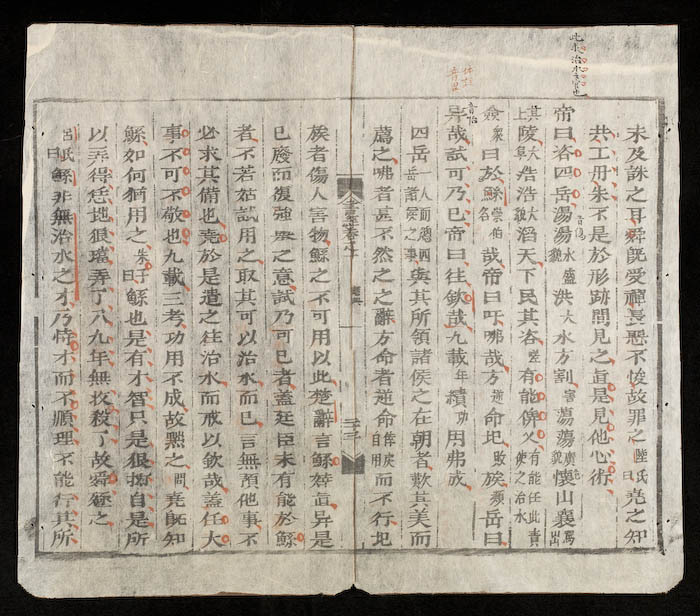 此求治水之官也
未及誅之耳舜既受禪長惡不悛故罪之陸氏曰堯之知
共工丹朱不是於形跡間見之直是見他心術
音傷
帝曰咨四岳湯湯水盛貌洪大水方割害蕩蕩廣貌懷山襄駕出
其上陵大阜浩浩大貌滔天下民其咨嗟有能俾乂有能任此責使之治水
僉衆曰於鯀崇伯名哉帝曰吁咈哉方逆命圮敗族類岳曰
音怡
异哉試可乃已帝曰往欽哉九載年績功用弗成
四岳一人而總四岳諸侯之事與其所領諸侯之在朝者歎其美而
薦之咈者甚不然之之辭方命者逆命倖戾自用而不行圮
堯典
二十三
族者傷人害物鯀之不可用以此楚辭言鯀婞直异是
已廢而復強舉之意試乃可已者蓋廷臣未有能於鯀
者不若姑試用之取其可以治水而已言無預他事不
必求其備也堯於是遣之往治水而戒以欽哉蓋任大
事不可不敬也九載三考功用不成故黜之問堯既知
鯀如何猶用之朱子曰鯀也是有才智只是狠拗自是所
以弄得恁地狠狽弄了八九年無收殺了故舜殛之
呂氏曰鯀非無治水之才乃恃才而不順理不能行其所